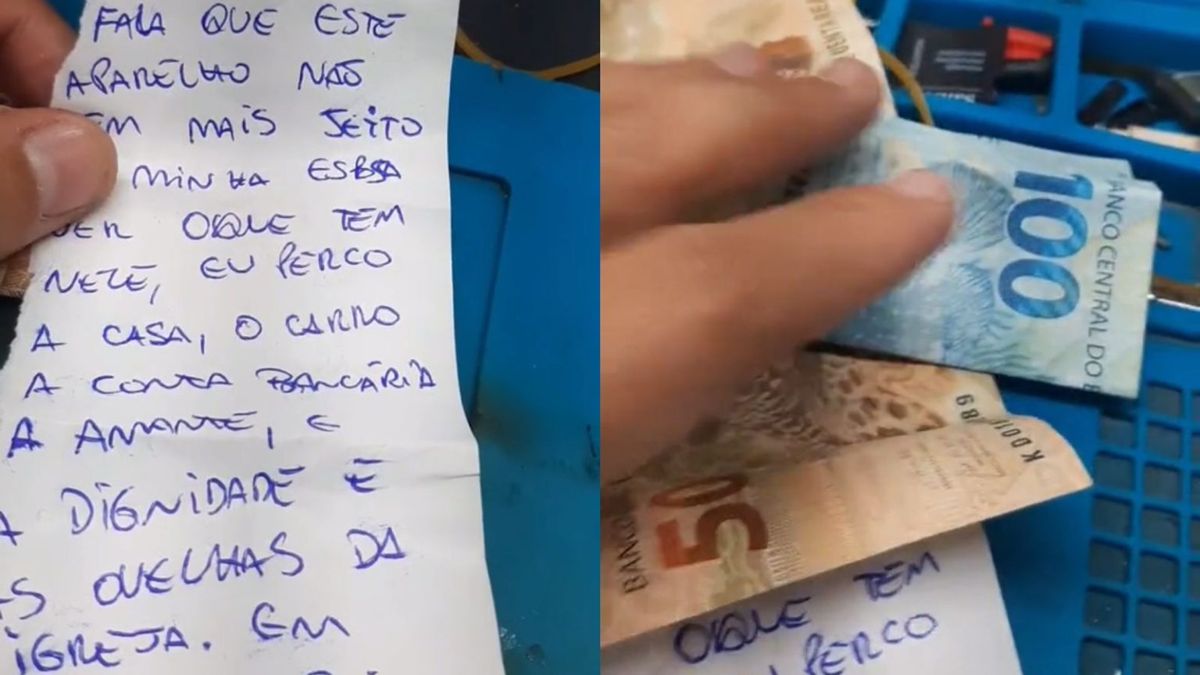 FALA QUE ESTE
APARELHO NÃO
EM MAIS JEITO
MINHA ESPSA
VER OIQUE TEM
NELE, EU PERCO
A CASA, O CARRO
A CONTA BANCÁRIA
A AMANTE, E
A DIGNIDADE E
AS OVELHAS DA
IGREJA. EM
100
BANCO CENTRAL DO B
89
K 001
50
BANCO
OIQUE TEM
PERCO